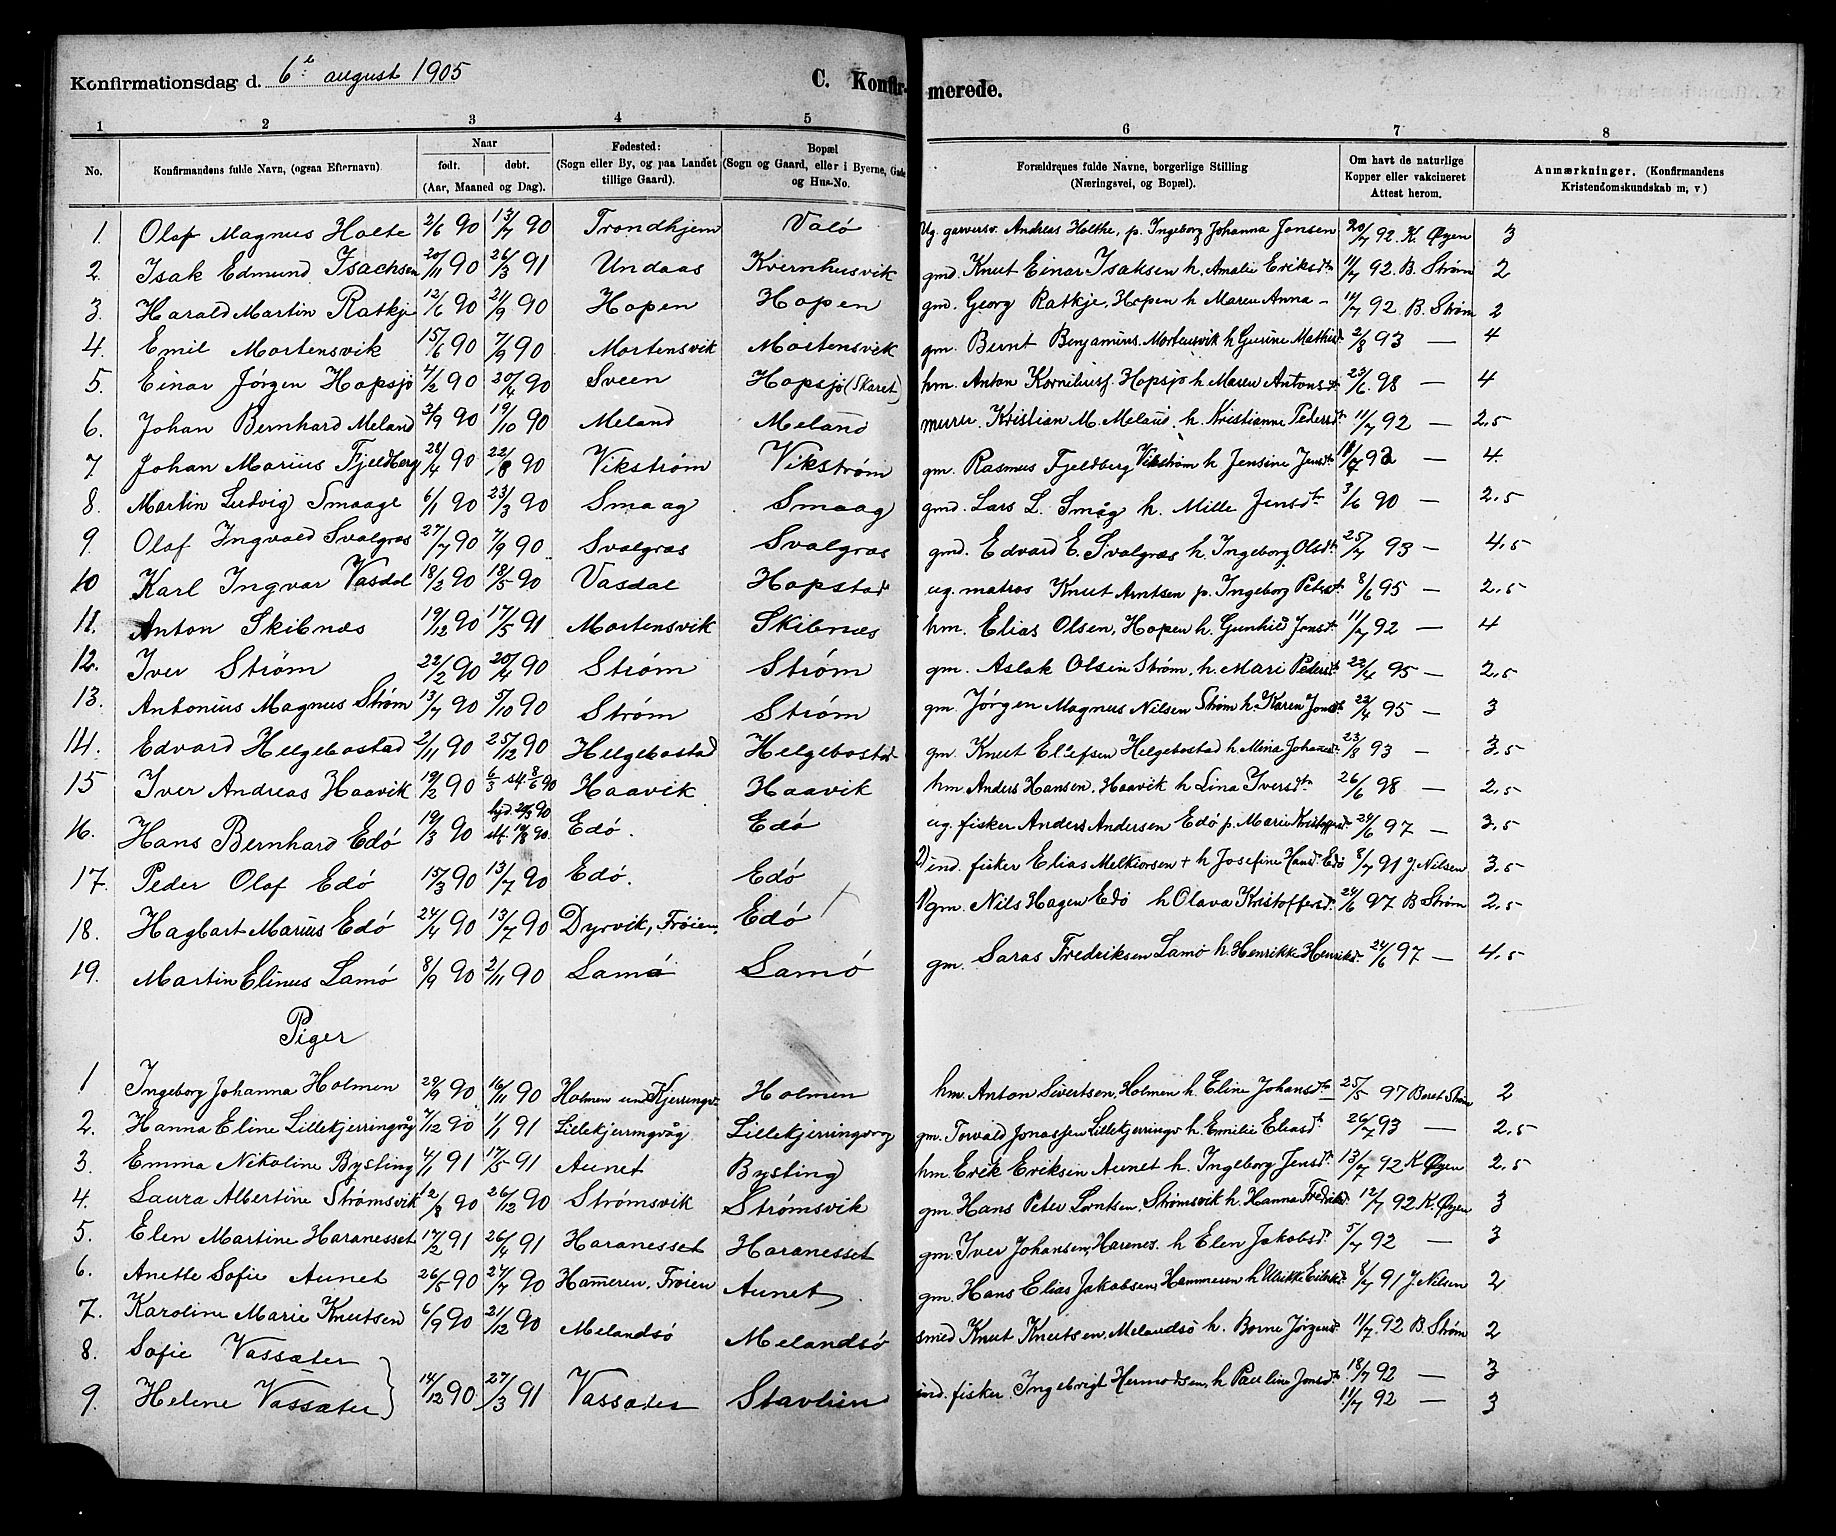 Konfirmationsdag d. 6te august 1905
C. Konfir-merede.
1 2 3 4 5 6 7 8
No. Konfirmandens fulde Navn, (ogsaa Efternavn). Naar født. døbt. (Aar, Maaned og Dag). Fødested: (Sogn eller By, og paa Landet tillige Gaard). Bopæl (Sogn og Gaard, eller i Byerne, Gade og Hus-No. Forældrenes fulde Navne, borgerlige Stilling (Næringsvei, og Bopæl). Om havt de naturlige Kopper eller vakcineret Attest herom. Anmærkninger. (Konfirmandens Kristendomskundskab m, v)
1. Olaf Magnus Holte 2/6 90 13/7 90 Trondhjem Valø Ug. garversv. Andreas Holthe, p. Ingeborg Johanna Jonsen 20/7 92. K. Øyen 3
2. Isak Edmund Isachsen 20/11 90 26/3 91 Undaas Kvernhusvik gmd. Knut Einar Isaksen h. Amalie Eriksdtr 11/7 92. B. Strøm 2
3. Harald Martin Ratkje 12/6 90 21/9 90 Hopen Hopen gmd. Georg Ratkje, Hopen h Maren Anna – 11/7 92 B. Strøm 2
4. Emil Mortensvik 15/6 90 7/9 90 Mortensvik Mortensvik gm. Bernt Benjamins. Mortensvik h Gurine Mathisd 2/8 93 — 4
5. Einar Jørgen Hopsjø 7/2 90 20/4 90 Sveen Hopsjø (Skaret) hm. Anton Korniliusf. Hopsjø h Maren Antonsd 23/6 98 — 4
6. Johan Bernhard Meland 3/9 90 19/10 90 Meland Meland murer. Kristian M. Meland, h. Kristianne Pedersd 11/7 92 — 2,5
7 Johan Marius Fjeldberg 28/4 90 22/6 90 Vikstrøm Vikstrøm gm. Rasmus Fjeldberg Vikstrøm h Jensine Jensdtr 11/7 92 — 4
8. Martin Ludvig Smaage 6/1 90 23/3 90 Smaag Smaag gmd. Lars L. Småg h. Mille Jensdtr 3/6 90 — 2,5
9. Olaf Ingvald Svalgræs 27/7 90 7/9 90 Svalgræs Svalgræs gmd. Edvard E. Svalgræs h. Ingeborg Olsdtr 25/7 93 — 4,5
10 Karl Ingvar Vasdal 18/2 90 18/5 90 Vasdal Hopstad ug. matros Knut Arntsen p. Ingeborg Petersd 8/6 95 — 2,5
11. Anton Skibnæs 19/12 90 17/5 91 Mortensvik Skibnæs hm. Elias Olsen, Hopen h. Gunhild Jonsd 11/7 92 — 4
12. Iver Strøm 22/2 90 20/4 90 Strøm Strøm gm. Aslak Olsen Strøm, h. Mari Pedersd 22/4 95 — 2,5
13. Antonius Magnus Strøm 13/7 90 5/10 90 Strøm Strøm gm. Jørgen Magnus Nilsen Strøm h. Karen Jonsd 22/4 95 — 3
14. Edvard Helgebostad 2/11 90 25/12 90 Helgebostad Helgebostad gm. Knut Elefsen Helgebostad h Mina Johansd 23/8 93 — 3,5
15 Iver Andreas Haavik 19/2 90 6/3 stf 8/6 90 Haavik Haavik hm. Anders Hansen, Haavik h Lina Iversdtr 26/6 98 — 2,5
16. Hans Bernhard Edø 19/3 90 hjd 20/3 90 Edø. Edø ug. fisker Anders Andersen Edø p. Marie Kristoffersd 24/6 97 — 3,5
17. Peder Olaf Edø 15/3 90 13/7 90 Edø. Edø ind. fisker Elias Melkiorsen + h Josefine Hansd. Edø 8/7 91 J. Nilsen 3,5
18. Hagbart Marius Edø 24/4 90 13/7 90 Dyrvik, Frøien Edø gm. Nils Hagen Edø h Olava Kristoffersd. 24/6 97 B Strøm 2,5
19. Martin Elinus Lamø 8/9 90 2/11 90 Lamø Lamø gm. Saras Fredriksen Lamø h. Henrikke Henriksd. 24/6 97 — 4,5
Piger
1 Ingeborg Johanna Holmen 29/9 90 16/11 90 Holmen und Kjerringv. Holmen hm. Anton Sivertsen, Holmen h. Eline Johansdtr 25/5 97 Beret Strøm 2
2. Hanna Eline Lillekjerringvåg 7/12 90 1/1 91 Lillekjerringvåg Lillekjerringvåg gm. Torvald Jonassen Lillekjerringv h. Emilie Eliasdtr 26/7 93 — 2,5
3. Emma Nikoline Bysting 4/1 91 17/5 91 Aunet Bysting hm. Erik Eriksen Aunet h. Ingeborg Jensdtr 13/7 92 K Øyen 2,5
4. Laura Albertine Strømsvik 12/8 90 26/12 90 Strømsvik Strømsvik gm. Hans Peter Lorntsen, Strømsvik h. Hanna Fredriksd. 12/7 92 K. Øyen 3
5. Elen Martine Haranesset 17/2 91 26/4 91 Haranesset Haranesset gm. Iver Johansen, Harenes. h Elen Jakobsd. 5/7 92 — 3
6. Anette Sofie Aunet 26/5 90 27/7 90 Hammeren, Frøien Aunet gm. Hans Elias Jakobsen, Hammeren h Ulrikke Eilertsd. 8/7 91 J. Nilsen 2
7. Karoline Marie Knutsen 6/9 90 21/12 90 Melandsø Melandsø smed Knut Knutsen, Melandsø h. Borne Jørgensd. 11/7. 92 B. Strøm 2
8. Sofie Vassæter 18/7 92 — 3
9. Helene Vassæter 14/12 90 27/3 91 Vassæter Stavlien ind. fisker. Ingebrigt Hermodsen, h Pauline Jonsdtr 11/7 92 — 3